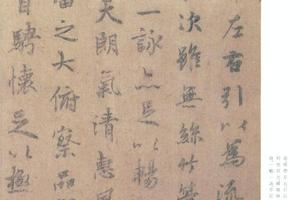 左右引以為流
次雖無絲竹管
一詠亦足以暢
天朗氣清惠風
宙之大俯察品
目騁懷足以極